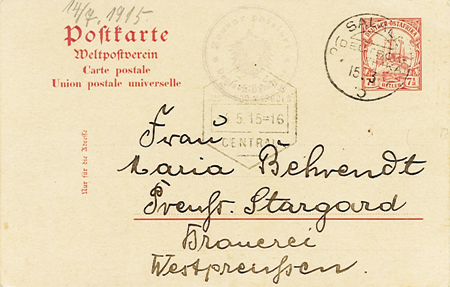 14/7. 1915
Postkarte
Weltpostverein
Carte postale
Union postale universelle
Nur für die Adresse
DEUTSCH-OSTAFRIKA
7½
HELLER
5.15=16
CENTRAL
Frau
Maria Behrendt
Preuß. Stargard
Brauerei
Westpreussen.